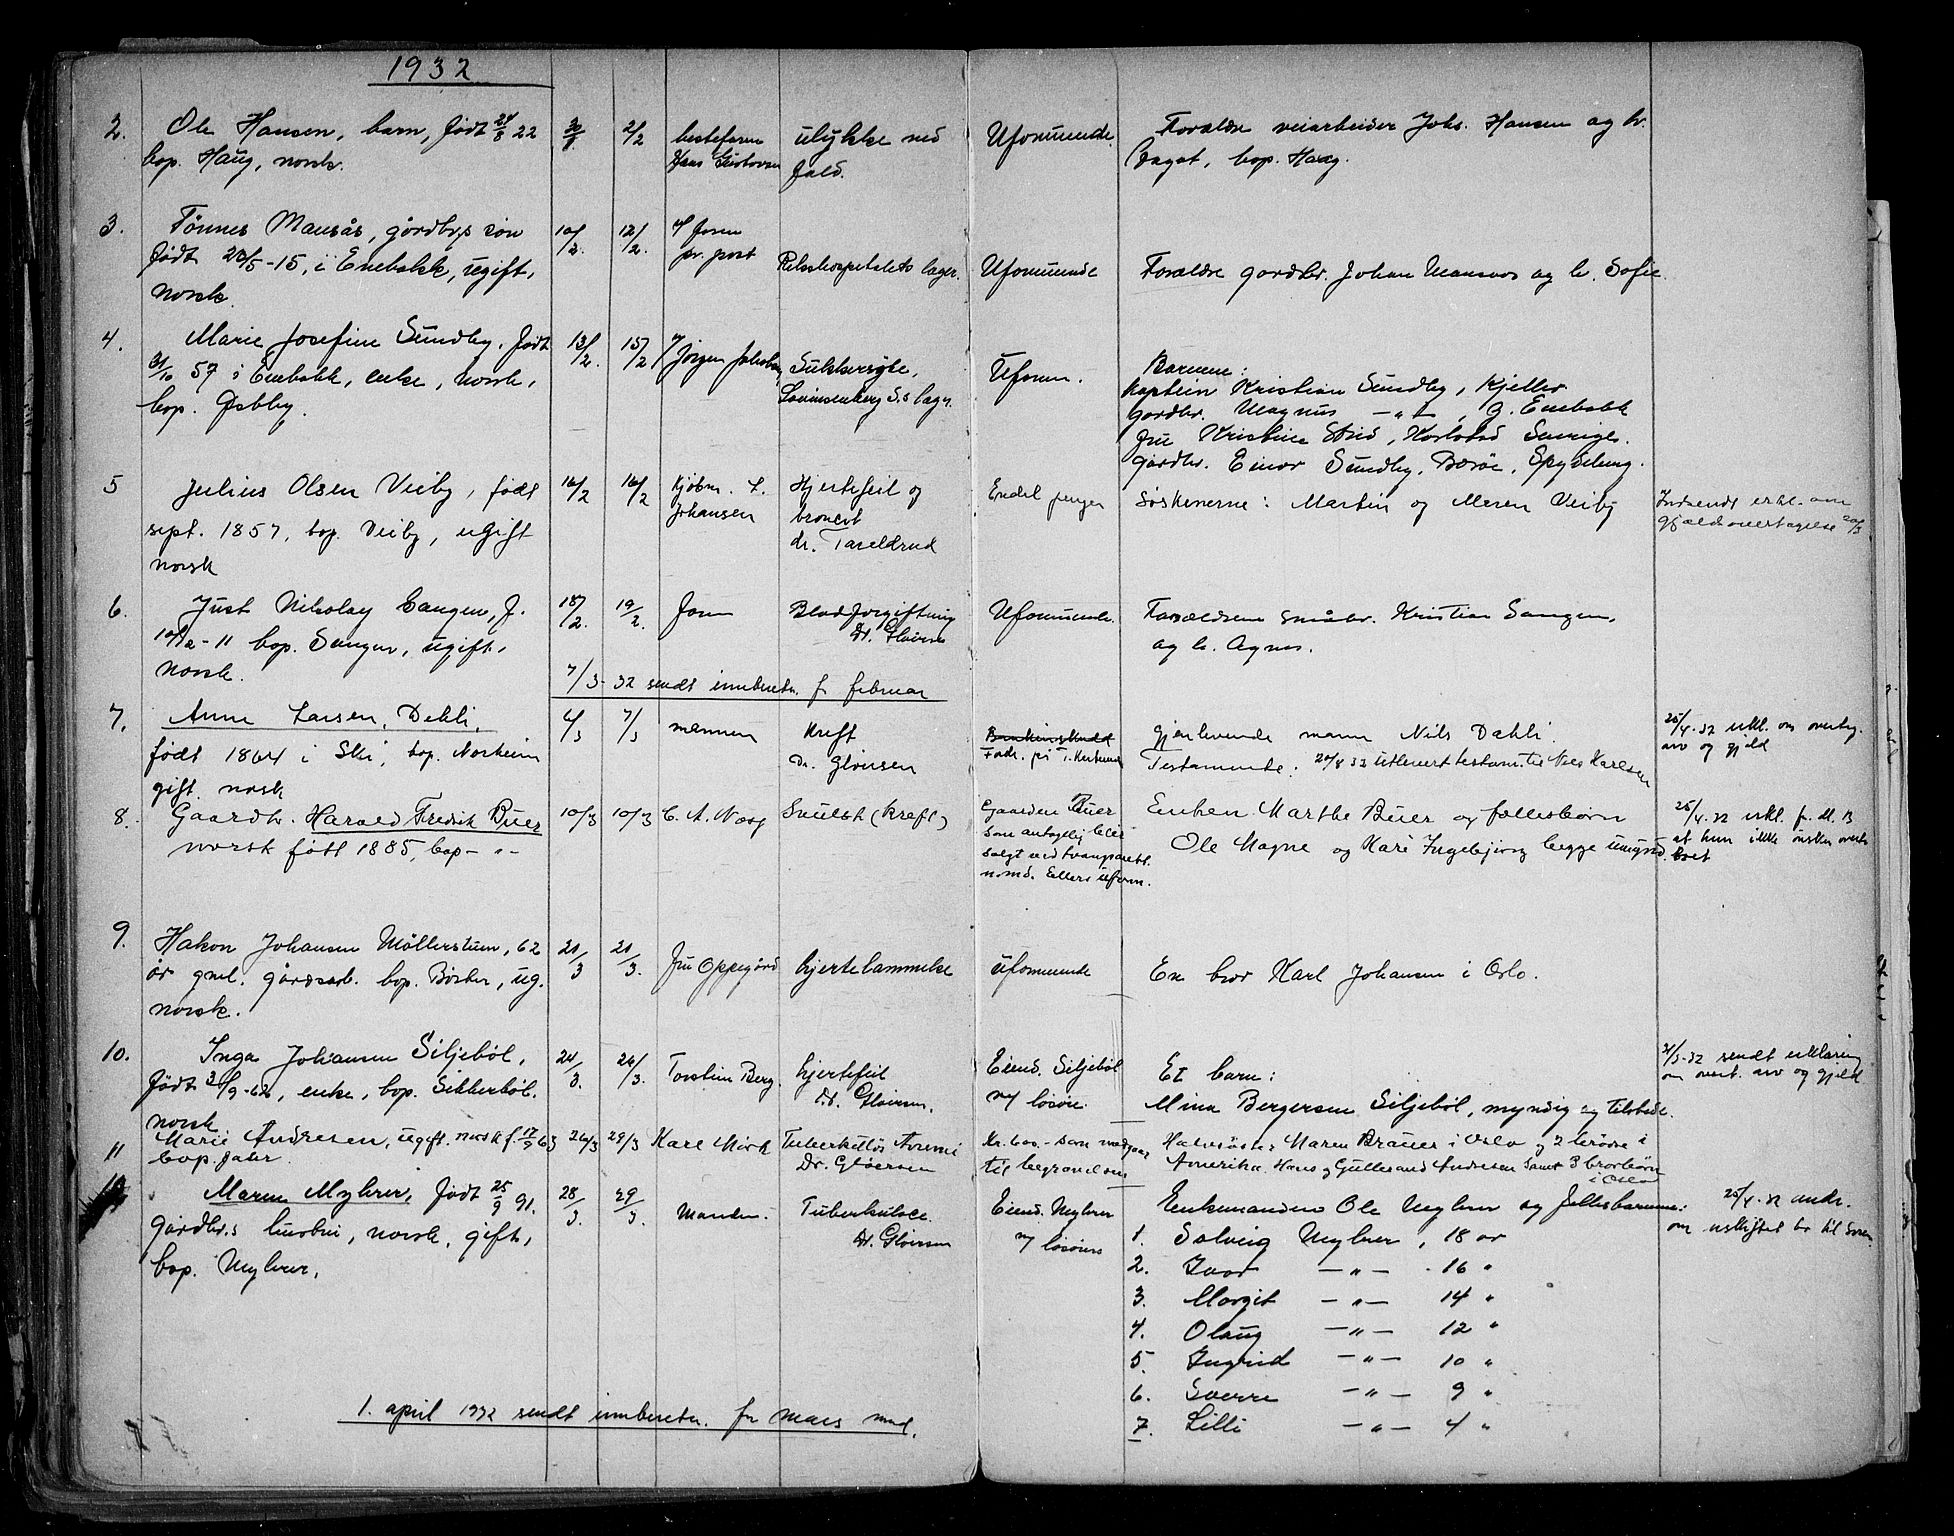 1932
2. Ole Hansen, barn, født 24/8 22
bop. Haug, norsk.
2/2
bestefaren
Hans Gustavsen
ulykke ved
fald.
Uformuende.
Forældre veiarbeider Johs. Hansen og h.
Dagot, bop. Haug.
3. Tønnes Mansås, gårdbr.s søn
født 23/5-15, i Enebakk, ugift,
norsk.
10/2. 12/2.
v/ faren
pr. post
Rikshospitalets lægr.
Uformuende
Forældre gårdbr. Johan Mansaas og h. Sofie.
4. Marie Josefine Sundby, født
31/10 57 i Enebakk, enke, norsk,
bop. Østby.
13/2. 15/2
v/ Jørgen
Sukkersyke,
Lovisenberg S.s lægr.
Uform.
Barnene:
Kaptein Kristian Sundby, Kjeller
gårdbr. Magnus —"— , g. Enebakk
fru Kristine Strid, Karlstad Sverige.
gårdbr. Einar Sundby, Spydeberg.
5 Julius Olsen Veiby, født
sept. 1857, bop. Veiby, ugift
norsk
16/2 16/2
Kjøbm. L.
Johansen
Hjertefeil og
bronkit
dr. Tareldrud
Endel penger
Søskenerne: Martin og Maren Veiby
Indsendt erkl. om
gjældsovertagelse 20/3
6. Just Nikolay Sangen, f.
10/12-11 bop. Sangen, ugift,
norsk.
18/2. 19/2.
faren
Blodforgiftning
Dr. Gløersen
Uformuende.
Forældrene småbr. Kristian Sangen,
og h. Agnes.
7/3-32 sendt innberetn. f. februar
7. Anne Larsen, Dehli,
født 1864 i Ski, bop. Norheim
gift. norsk
6/3 7/3
mannen
Kreft
Dr. Gløersen
gjenlevende mann Nils Dehli.
Testamente: 20/8 32 utlevert testam. til Nils Karlsen
25/4-32 erkl. om overtag.
arv og gjeld
8. Gaardbr. Harald Fredrik Buer
norsk født 1885, bop —"—
10/3 10/3
C. A. Næsg
Svulst (kreft)
Gaarden Buer
som antagelig blir
solgt ved tvangsaukt.
nomd. Ellers uform.
Enken Marthe Buer og fællesbørn
Ole Magne og Kari Ingebjørg begge umynd.
25/4-32 erkl. f. M. B
at hun ikke ønsker overta
boet
9. Hakon Johansen Möllerstuen, 62
år gml. gårdsarb. bop. Börter, ug.
norsk.
21/3 21/3.
fru Oppegård
hjertelammelse
uformuende
En bror Karl Johansen i Oslo.
10. Inga Johansen Siljeböl,
født 3/9-62, enke, bop. Sikkerböl.
norsk
24/3. 26/3.
Torstein Berg.
hjertefeil
Dr. Gløersen.
Eiend. Siljeböl
m/ løsøre.
Et barn:
Mina Bergersen Siljeböl, myndig og tilstede.
31/3-32 sendt erklæring
om overt. arv og gjeld
11 Marie Andresen, ugift. norsk f. 17/9 63
bop. Jahr.
26/3 29/3
Karl Mörk
Tuberkuløs
Dr. Gløersen
Kr. 600.- som medgaar
til begravelsen
Halvsøster Maren Brauer i Oslo og 2 brødre i
Amerika. Hans og Gullerand Andresen samt 3 brorbørn
i Oslo
12. Maren Myhrer, født 25/9 91.
gårdbr.s hustru, norsk, gift,
bop. Myhrer.
28/3. 29/3.
Manden.
Tuberkulose.
Dr. Gløersen
Eiend. Myhrer
m/ løsøre
Enkemanden Ole Myhrer og fellesbarnene:
1. Solveig Myhrer, 18 år
2. Ivar —"— 16 "
3. Margit —"— 14 "
4. Olaug —"— 12 "
5. Ingrid —"— 10 "
6. Sverre —"— 9 "
7. Lilli —"— 4 "
25/4-32 andr.
om uskiftet bo til Soren.
1. april 1932 sendt innberetn. for mars mnd.